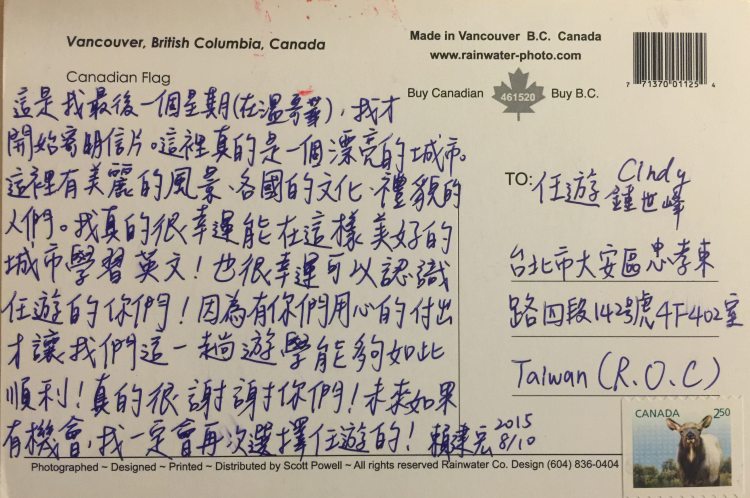 Vancouver, British Columbia, Canada
Canadian Flag
Made in Vancouver B.C. Canada
www.rainwater-photo.com
Buy Canadian 461520 Buy B.C.
7 71370 01125 4
這是我最後一個星期(在溫哥華),我才
開始寄明信片。這裡真的是一個漂亮的城市。
這裡有美麗的風景、各國的文化、禮貌的
人們。我真的很幸運能在這樣美好的
城市學習英文!也很幸運可以認識
任遊的你們!因為有你們用心的付出
才讓我們這一趟遊學能夠如此
順利!真的很謝謝你們!未來如果
有機會,我一定會再次選擇任遊的!
賴建宏 2015 8/10
TO: 任遊 Cindy
鍾世峰
台北市大安區忠孝東
路四段142號4F-402室
Taiwan (R.O.C)
CANADA 2.50
Photographed ~ Designed ~ Printed ~ Distributed by Scott Powell ~ All rights reserved Rainwater Co. Design (604) 836-0404